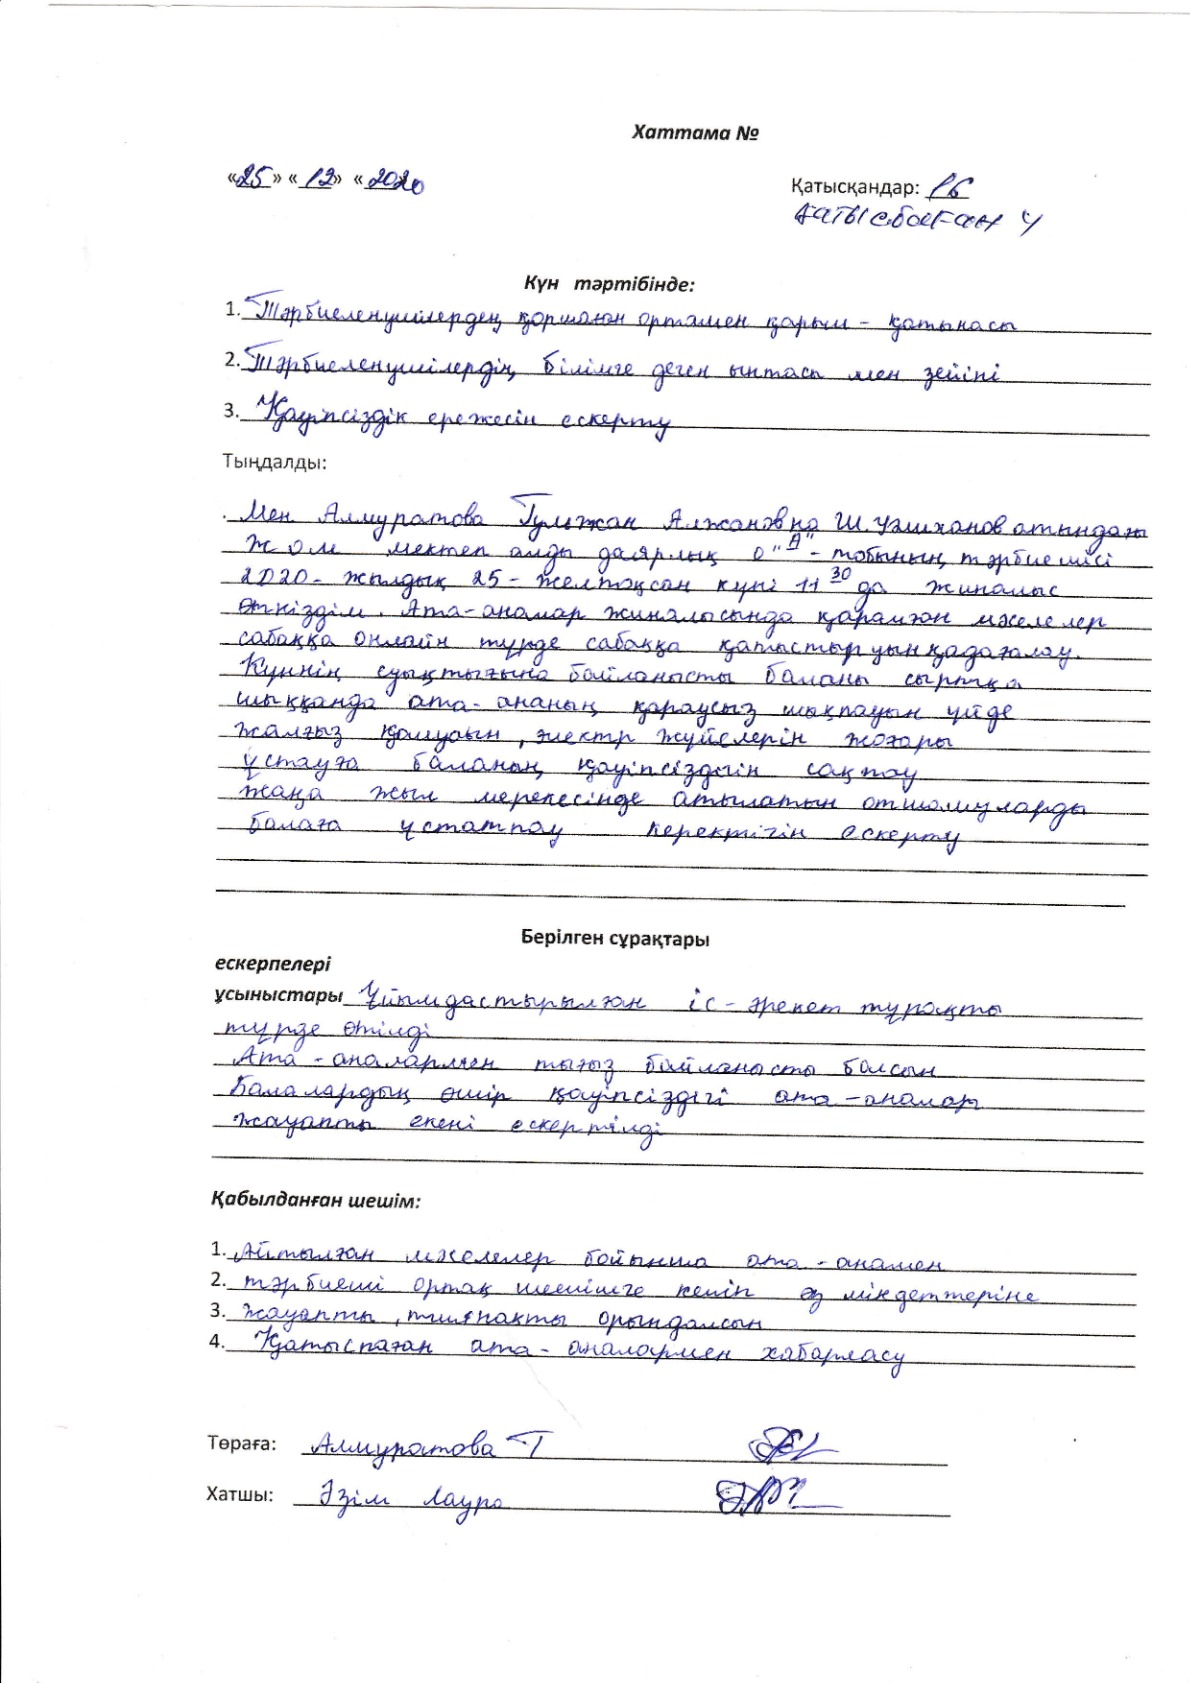 Хаттама №
«25» «12» «2020
Қатысқандар: 16
Қатыспаған 4
Күн тәртібінде:
1. Тәрбиеленушілердең қоршаған ортамен қарым - қатынасы
2. Тәрбиеленушілердің білімге деген ынтасы мен зейіні
3. Қауіпсіздік ережесін ескерту
Тыңдалды:
. Мен Алмуратова Гулжан Алжановна Ш. Уәлиханов атындағы
ЖОМ мектеп алды даярлық 0 "А" - тобының тәрбиешісі
2020 - жылдық 25 - желтоқсан күні 11 30 да жиналыс
өткіздім. Ата-аналар жиналысында қаралған мәселелер
сабаққа онлайн түрде сабаққа қатыстыруын қадағалау.
Күннің суықтығына байланысты баланы сыртқа
шыққанда ата-ананың қараусыз шықпауын үйде
жалғыз қалмауын, электр жүйелерін жоғары
ұстауға баланың қауіпсіздігін сақтау
жаңа жыл мерекесінде атылатын отшашуларды
балаға ұстатпау керектігін ескерту
Берілген сұрақтары
ескерпелері
ұсыныстары Ұйымдастырылған іс - әрекет тұрақты
түрде өтілді
Ата - аналармен тығыз байланысты болсын
Балалардың өмір қауіпсіздігі ата - аналар
жауапты екені ескертілді
Қабылданған шешім:
1. Айтылған мәселелер бойынша ата - анамен
2. тәрбиеші ортақ шешімге келіп өз міндеттеріне
3. жауапты, тиянақты орындалсын
4. Қатыспаған ата - аналармен хабарласу
Төраға: Алмуратова Г
Хатшы: Әзім Лаура